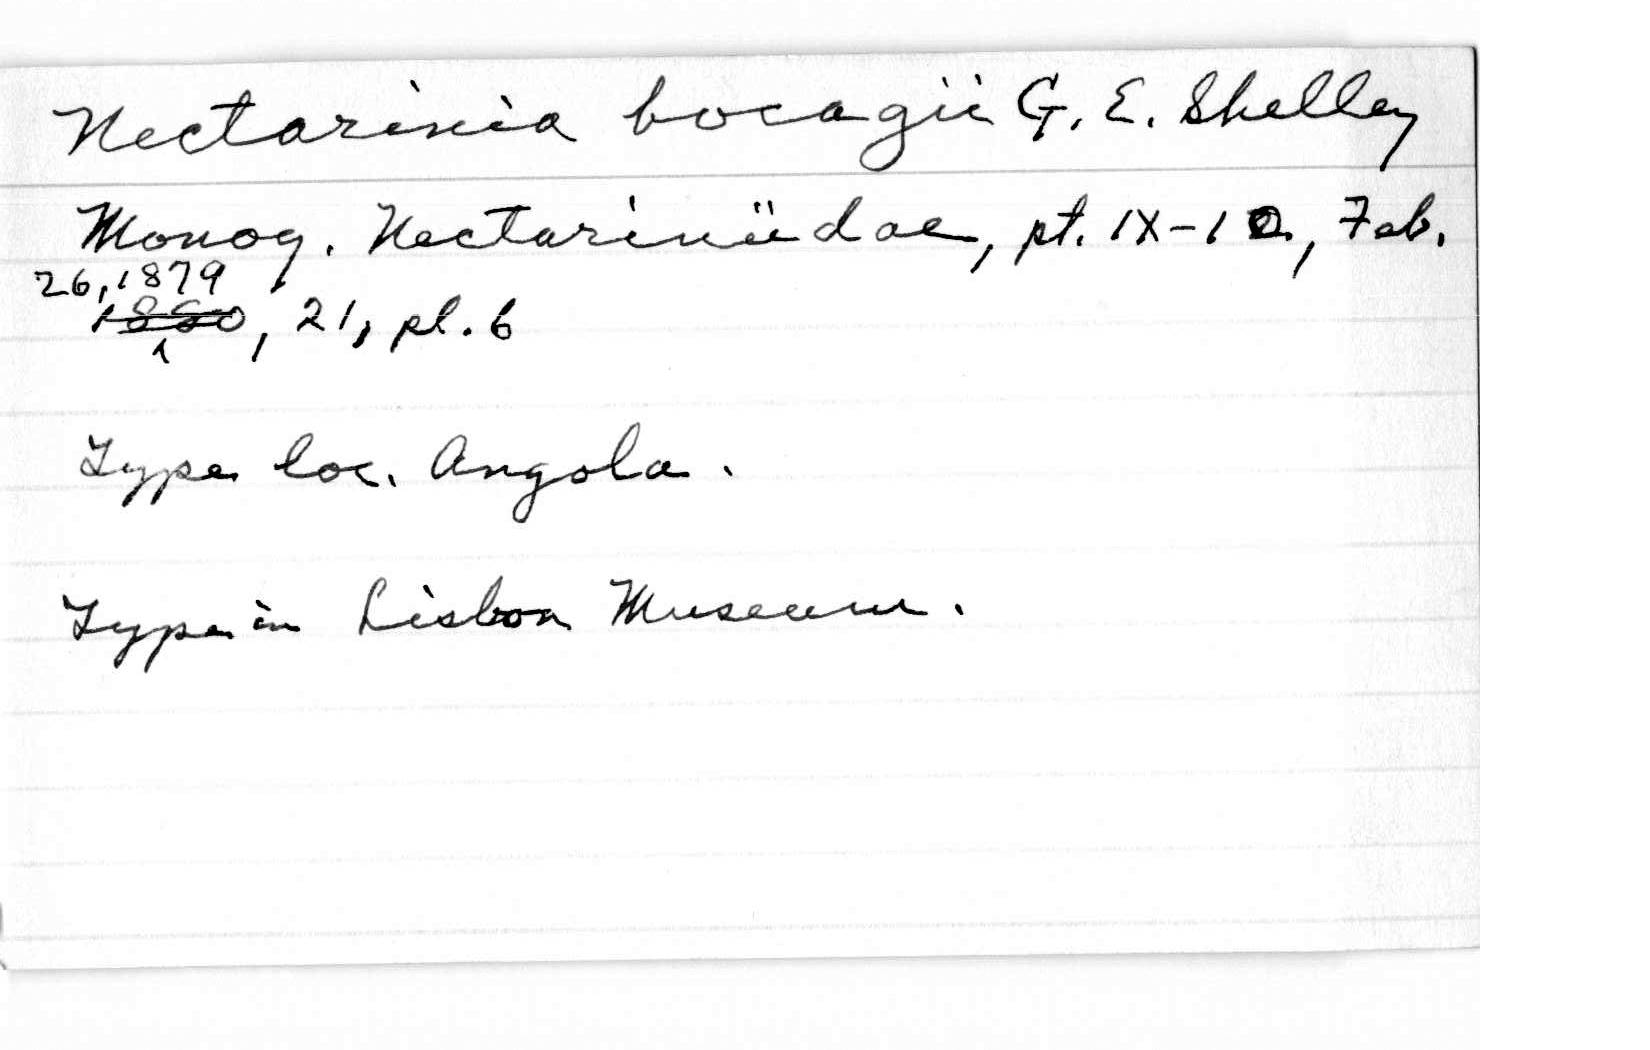 Nectarinia bocagii G. E. Shelley
Monog. Nectariniidae, pt. IX-10, Feb.
26, 1879
1880, 21, pl. 6
Type loc. Angola.
Type in Lisbon Museum.